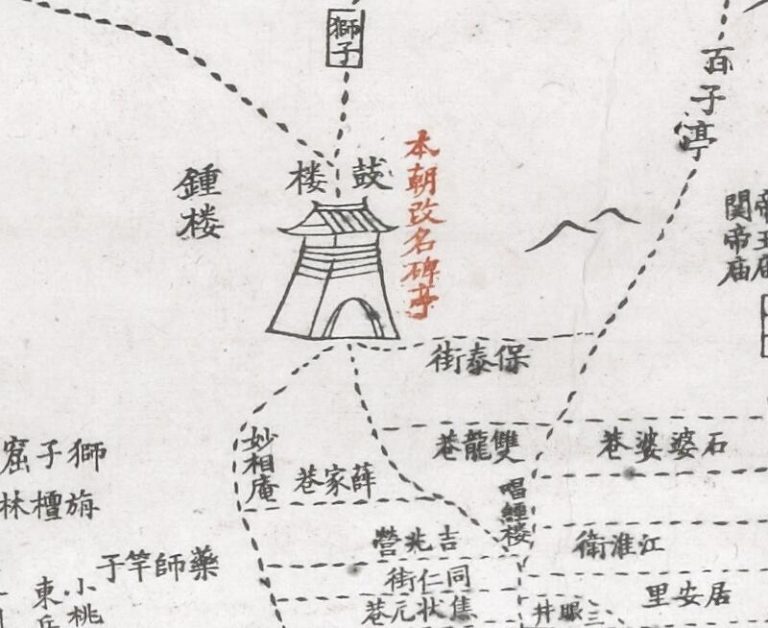 獅子
百子亭
鼓楼
鍾楼
本朝改名碑亭
帝王庙
関帝庙
保泰街
雙龍巷
石婆婆巷
妙相庵
薛家巷
唱經楼
獅子窟
旃檀林
吉兆營
江淮衛
藥師竿子
同仁街
居安里
小桃
東
焦状元巷
三眼井